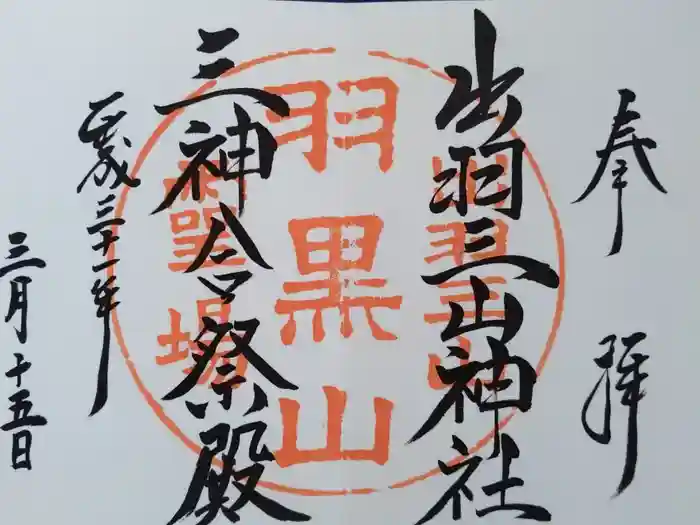 奉拝
出羽三山神社
羽黒山
三神合祭殿
平成三十一年
三月十五日